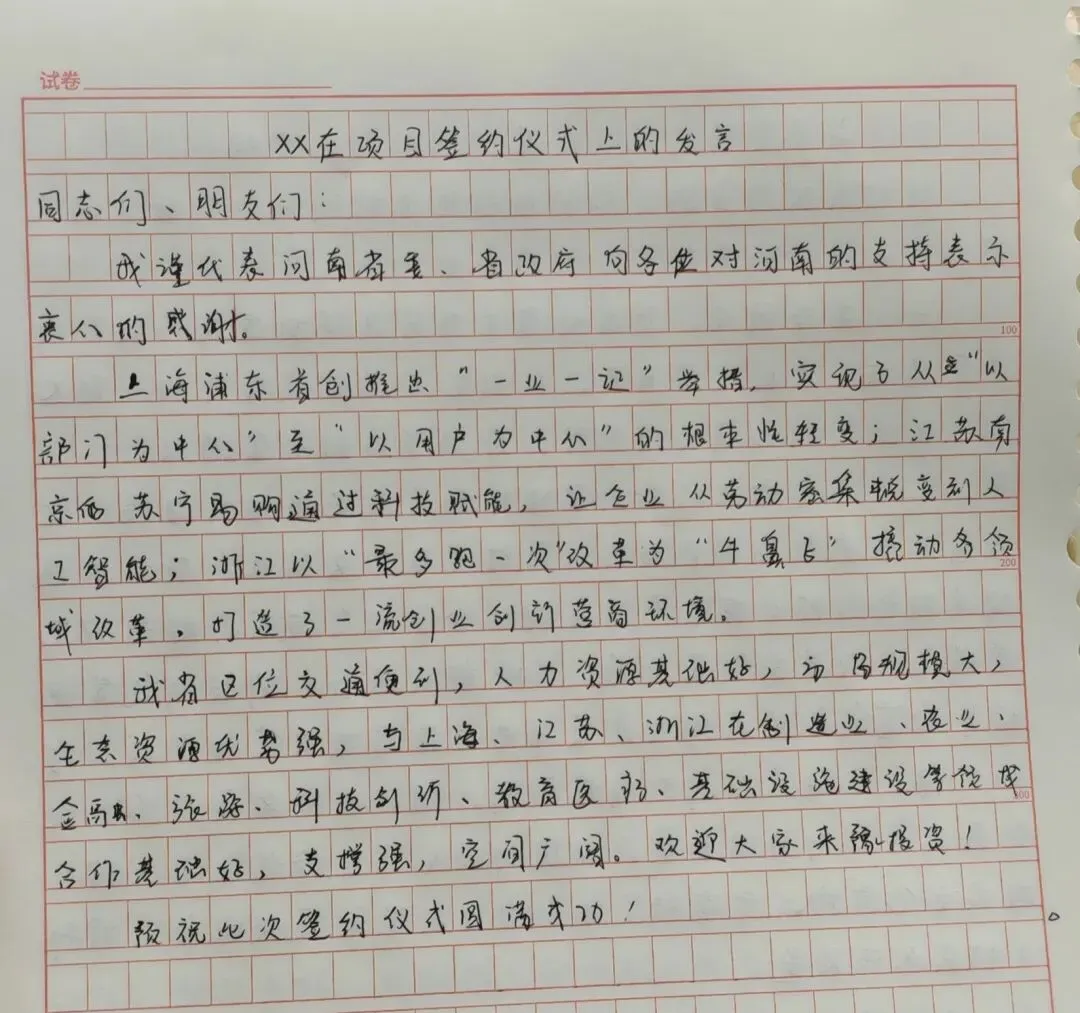 试卷
XX在项目签约仪式上的发言
同志们、朋友们：
我谨代表河南省委、省政府向各位对河南的支持表示
衷心的感谢。
上海浦东首创推出“一业一证”举措，实现了从“以
部门为中心”至“以用户为中心”的根本性转变；江苏南
京的苏宁易购通过科技赋能，让企业从劳动密集蜕变到人
工智能；浙江以“最多跑一次”改革为“牛鼻子”撬动各领
域改革，打造了一流创业创新营商环境。
100
200
我省区位交通便利，人力资源基础好，市场规模大，
生态资源优势强，与上海、江苏、浙江在制造业、农业、
金融、旅游、科技创新、教育医疗、基础设施建设等领域
合作基础好，支撑强，空间广阔。欢迎大家来豫投资！
预祝此次签约仪式圆满成功！